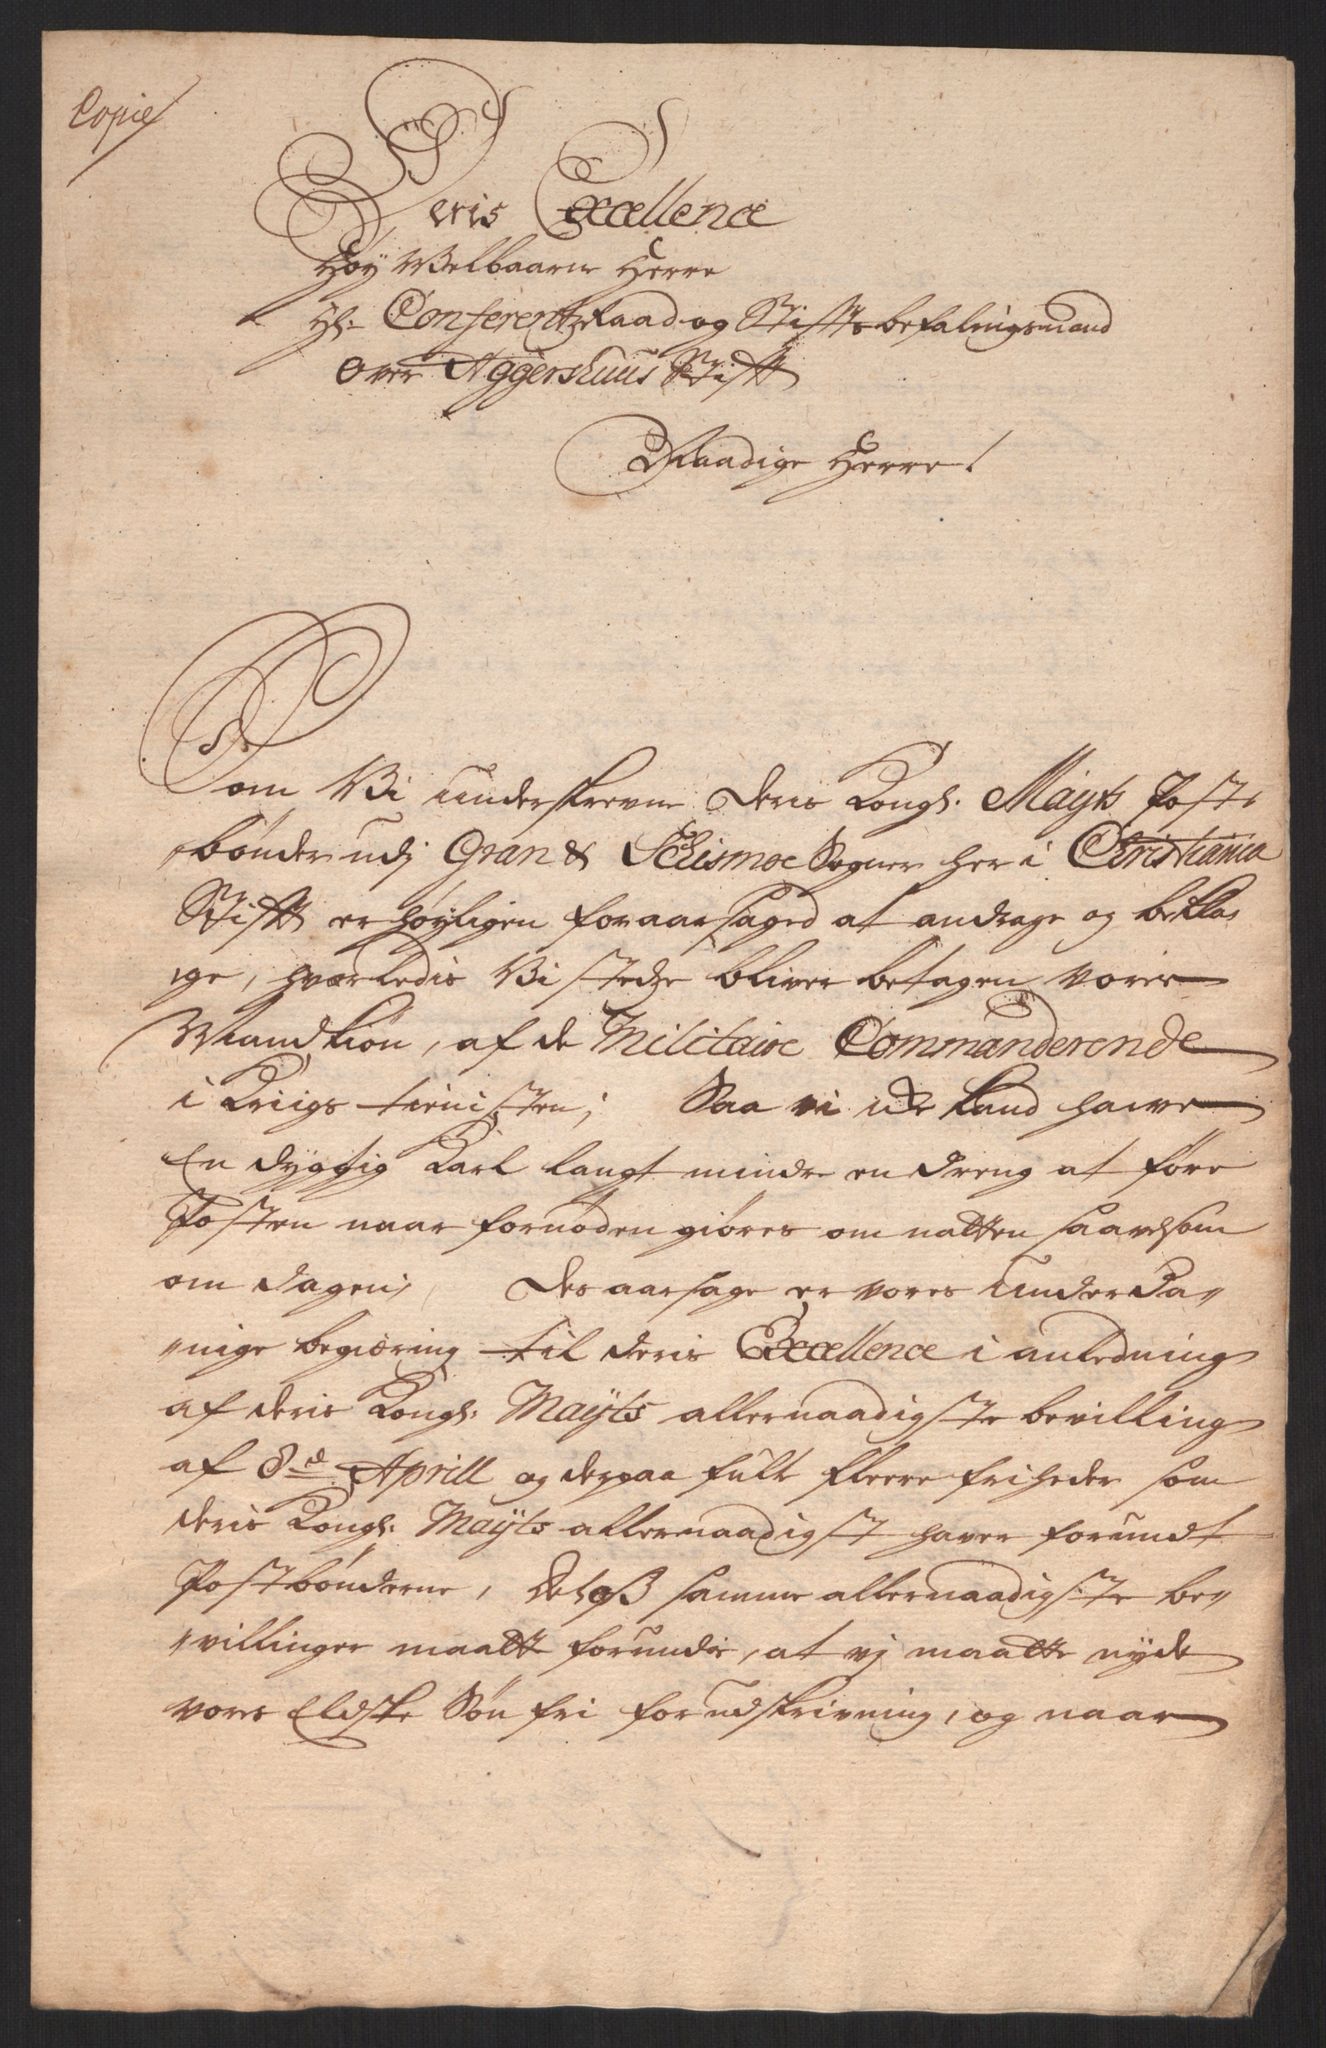 Copie
Deris Excellence
Høy Welbaarne Herre
Hr. Conferentz Raad og Stiftsbefalingsmand
over Aggershuus Stift
Naadige Herre!
Som Vi underskrevne Deris Kongl. Mayts Post-
bønder udj Gran & Schismoe Sogner her i Christiania
Stift er høyligen foraarsaged at andrage og bekla-
ge, hvorledis Vi stedze bliver betagen voris
Mandkiøn, af de Militaire Commanderende
i Kriigs tienisten; Saa vi icke kand hawe
En dygtig Karl langt mindre en dreng at føre
Posten naar fornøden giøres om natten saavelsom
om dagen, Des aarsage er vores underda-
nige begiering til deris Excellence i anledning
af deris Kongl. Mayts allernaadigste bevilling
af 8d Aprill og derpaa fult fleere friheder som
deris Kongl. Mayts allernaadigst haver forundt
Postbønderne, At oß samme allernaadigste be-
villinger maatte forundis, at vj maatte nyde
vores Eldste Søn fri for udskrivning, og naar